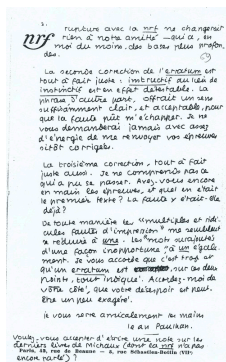 2.
nrf
rupture avec la nrf ne changerait
rien à notre amitié — qui a, en
moi du moins, des bases plus profon-
des.
La seconde correction de l'erratum est
tout à fait juste : instructif au lieu de
instinctif est en effet détestable. La
phrase d'autre part, offrait un sens
suffisamment clair, et acceptable, pour
que la faute pût m'échapper. Je ne
vous demanderai jamais avec assez
d'énergie de me renvoyer vos épreuves
sitôt corrigées.
La troisième correction, tout à fait
juste aussi. Je ne comprends pas ce
qui a pu se passer. Avez-vous encore
en main les épreuves, et quel en était
le premier texte ? La faute y était-elle
déjà ?
De toute manière les "multiples et ridi-
cules fautes d'impression" me semblent
se réduire à une, les "mots surajoutés
d'une façon inopportune", à un également.
ment. Je vous accorde que c'est trop et
qu'un erratum est sur ces deux
points, tout indiqué. Accordez-moi de
votre côté, que votre désespoir est peut-
être un peu exagéré.
je vous serre amicalement les mains
Jean Paulhan.
Voulez-vous accepter d'écrire une note sur les
derniers livres de Michaux (dont la nrf n'a pas
encore parlé) ?
Paris, 43, rue de Beaune — 5, rue Sébastien-Bottin (VIIe)